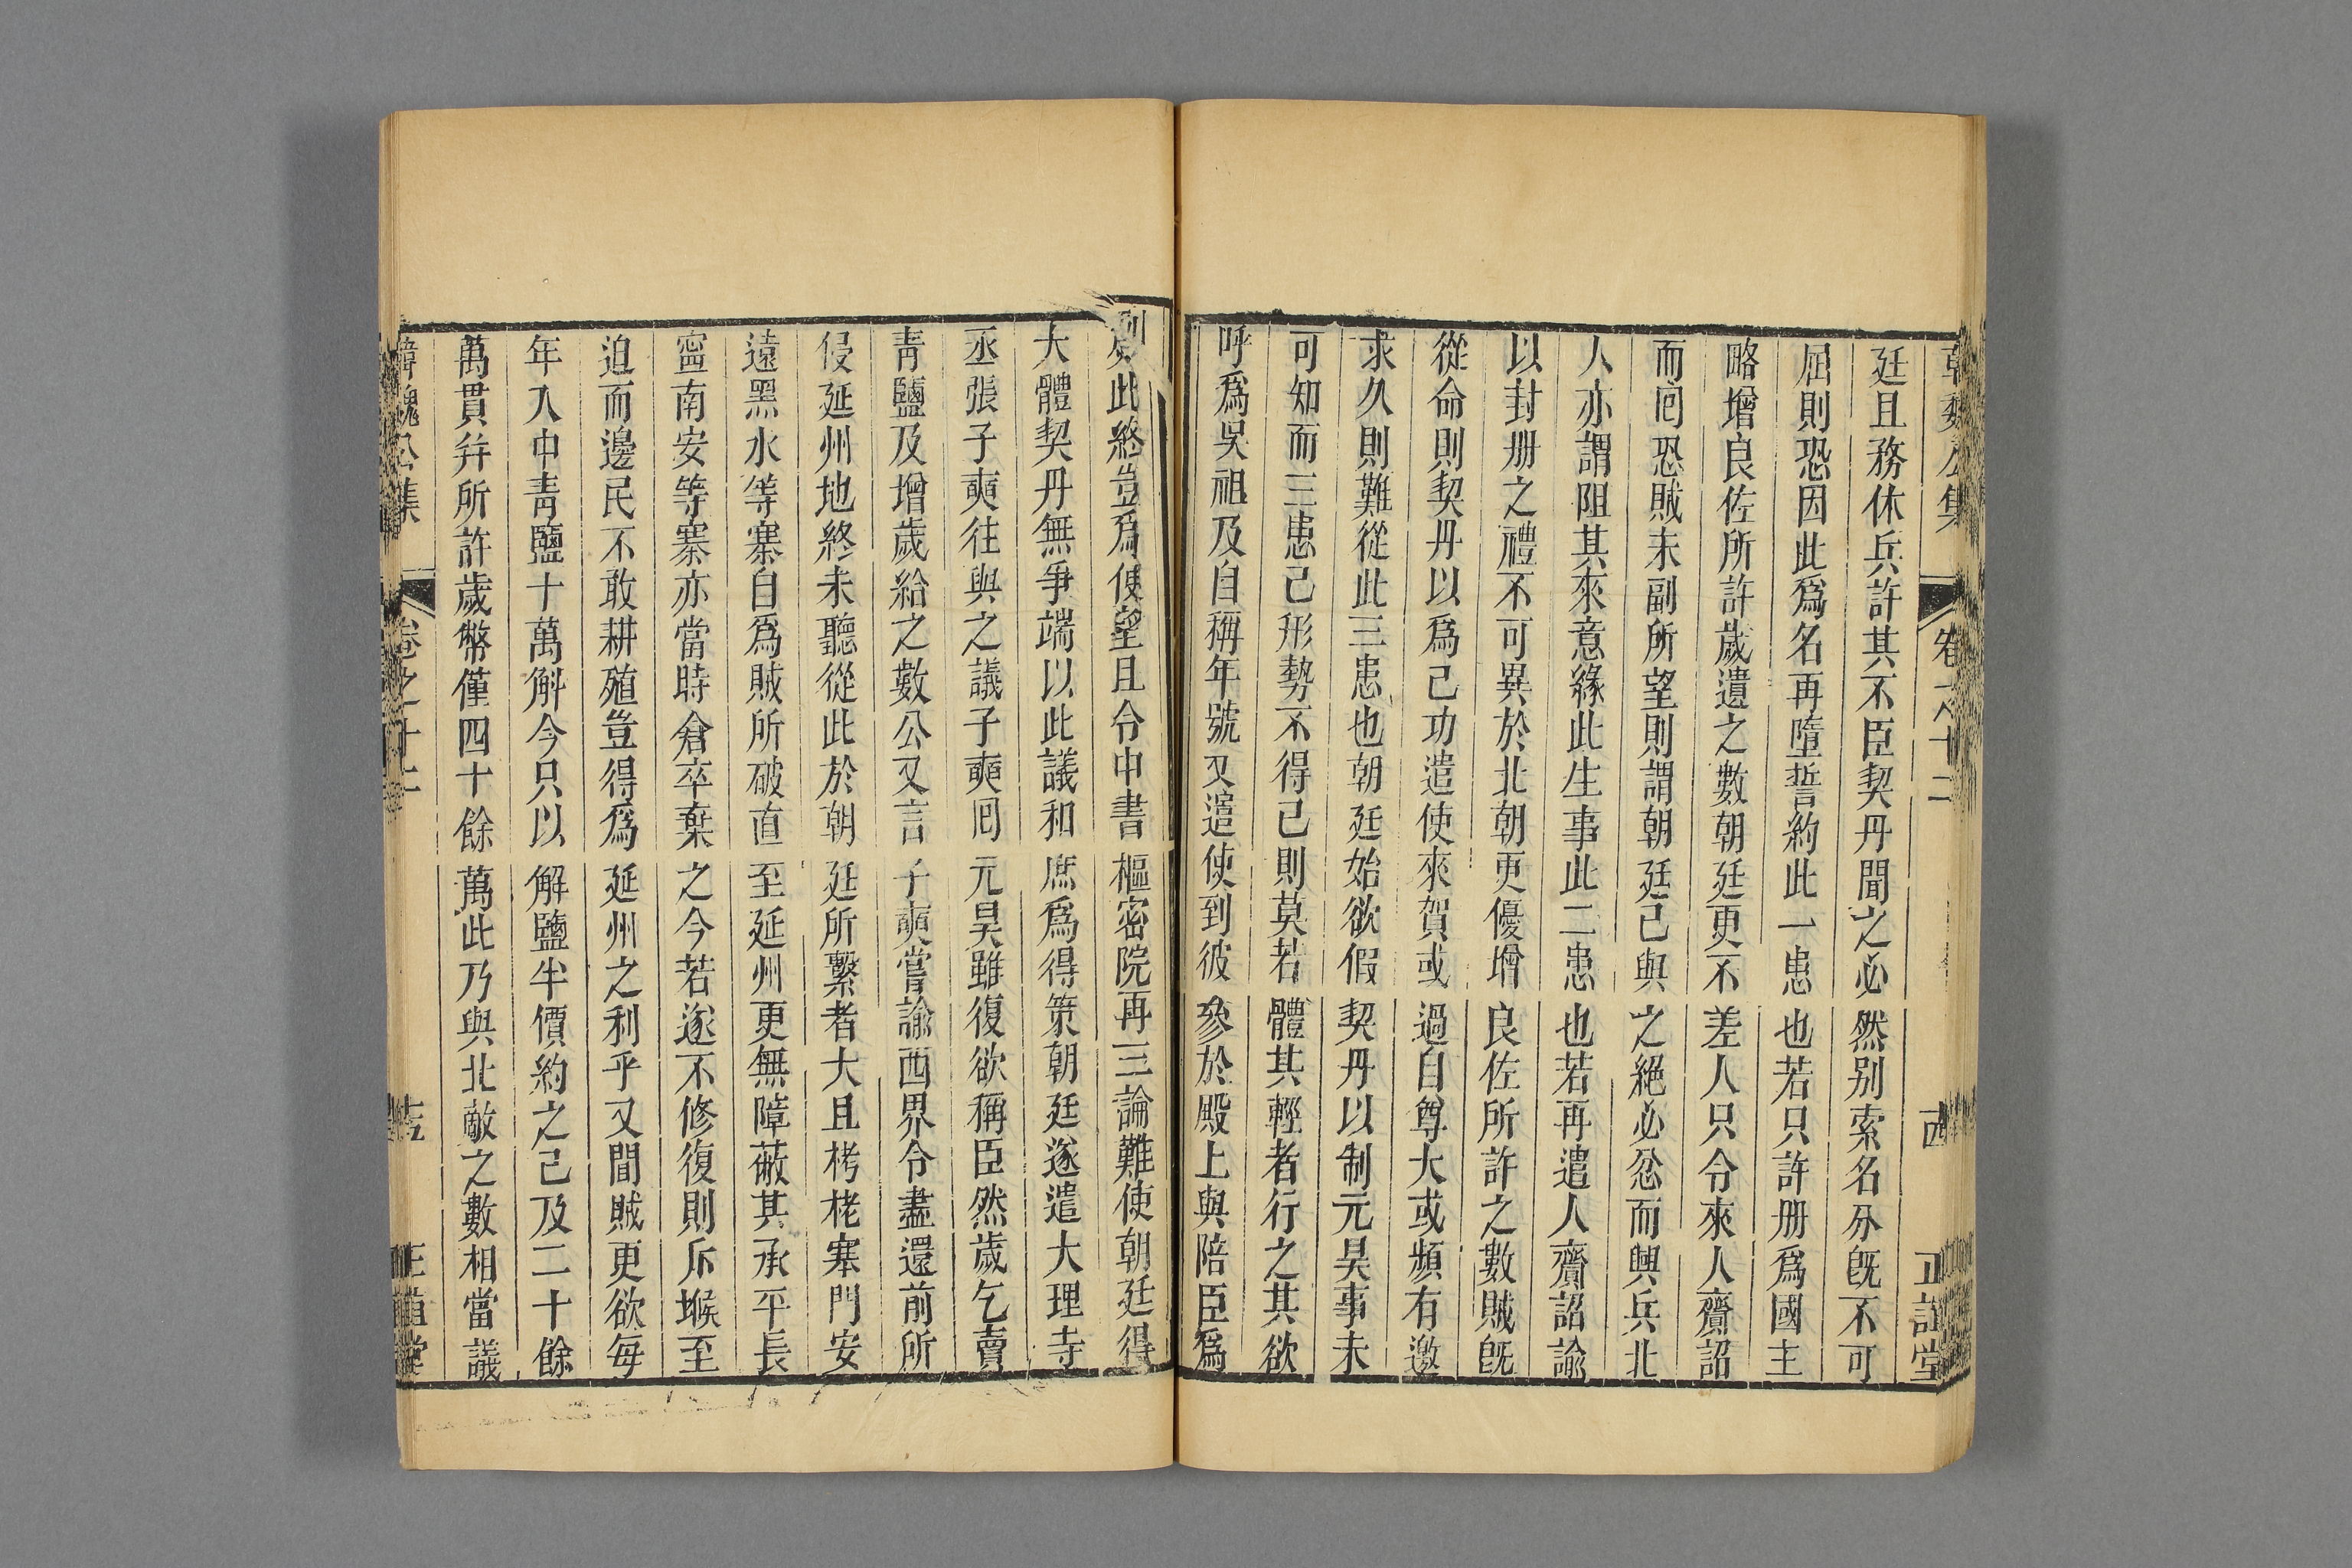 韓魏公集 卷之十二 十四 正誼堂
廷且務休兵許其不臣契丹聞之必然别索名分旣不可
屈則恐因此爲名再墮誓約此一患也若只許册爲國主
略增良佐所許歲遺之數朝廷更不差人只令來人齎詔
而囘恐賊未副所望則謂朝廷已與之絕必忿而興兵北
人亦謂阻其來意緣此生事此二患也若再遣人齎詔諭
以封册之禮不可異於北朝更優增良佐所許之數賊旣
從命則契丹以爲己功遣使來賀或過自尊大或頻有邀
求久則難從此三患也朝廷始欲假契丹以制元昊事未
可知而三患已形勢不得已則莫若體其輕者行之其欲
呼爲吳祖及自稱年號又遣使到彼參於殿上與陪臣爲
列此終豈爲使望且令中書樞密院再三論難使朝廷得
大體契丹無爭端以此議和庶爲得策朝廷遂遣大理寺
丞張子奭往與之議子奭囘元昊雖復欲稱臣然歲乞賣
靑鹽及增歲給之數公又言子奭嘗諭西界令盡還前所
侵延州地終未聽從此於朝廷所繫者大且栲栳塞門安
遠黑水等寨自爲賊所破直至延州更無障蔽其承平長
寜南安等寨亦當時倉卒棄之今若遂不修復則斥堠至
迫而邊民不敢耕殖豈得爲延州之利乎又聞賊更欲每
年入中靑鹽十萬斛今只以解鹽半價約之已及二十餘
萬貫并所許歲幣僅四十餘萬此乃與北敵之數相當議
韓魏公集 卷之十二 十五 正誼堂